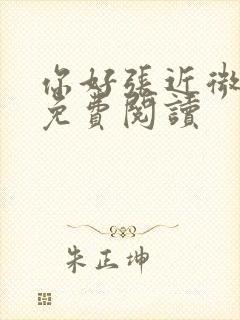 你好張近微
免費閱讀
朱正坤